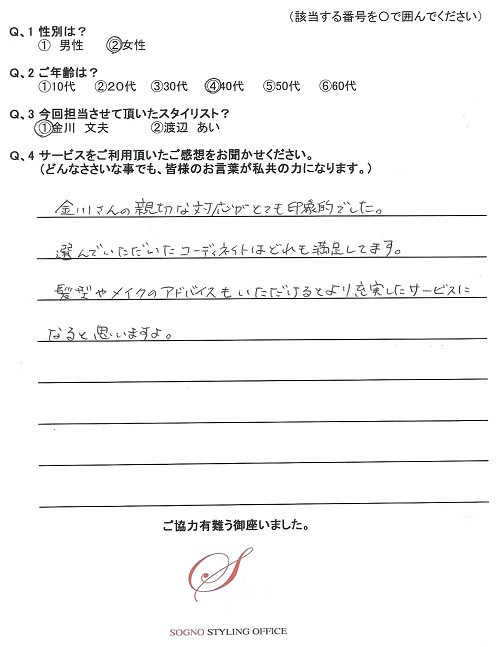 (該当する番号を〇で囲んでください)
Q、1 性別は?
① 男性 ②女性
Q、2 ご年齢は?
①10代 ②20代 ③30代 ④40代 ⑤50代 ⑥60代
Q、3 今回担当させて頂いたスタイリスト?
①金川 文夫 ②渡辺 あい
Q、4 サービスをご利用頂いたご感想をお聞かせください。
(どんなささいな事でも、皆様のお言葉が私共の力になります。)
金川さんの親切な対応がとても印象的でした。
選んでいただいたコーディネイトはどれも満足してます。
髪型やメイクのアドバイスもいただけるとより充実したサービスに
なると思いますよ。
ご協力有難う御座いました。
S
SOGNO STYLING OFFICE